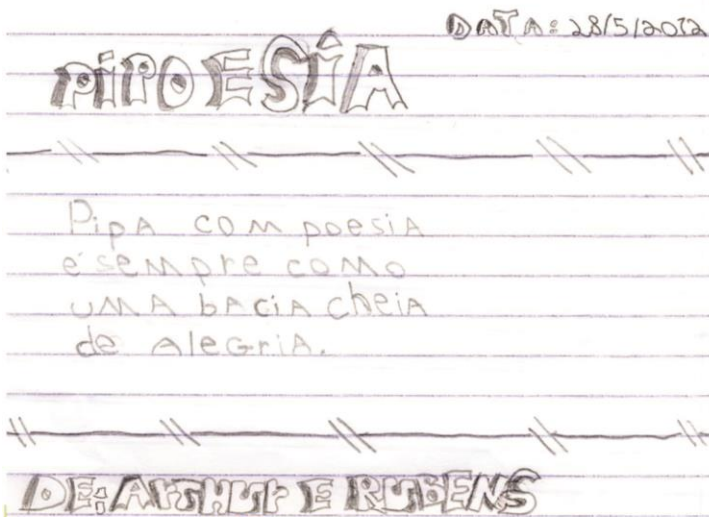 DATA: 28/5/2012
PIPOESIA
PipA COM poesiA
é sempre como
UMA bAciA cheiA
de AleGriA.
DE: ArTHUr E RUBENS